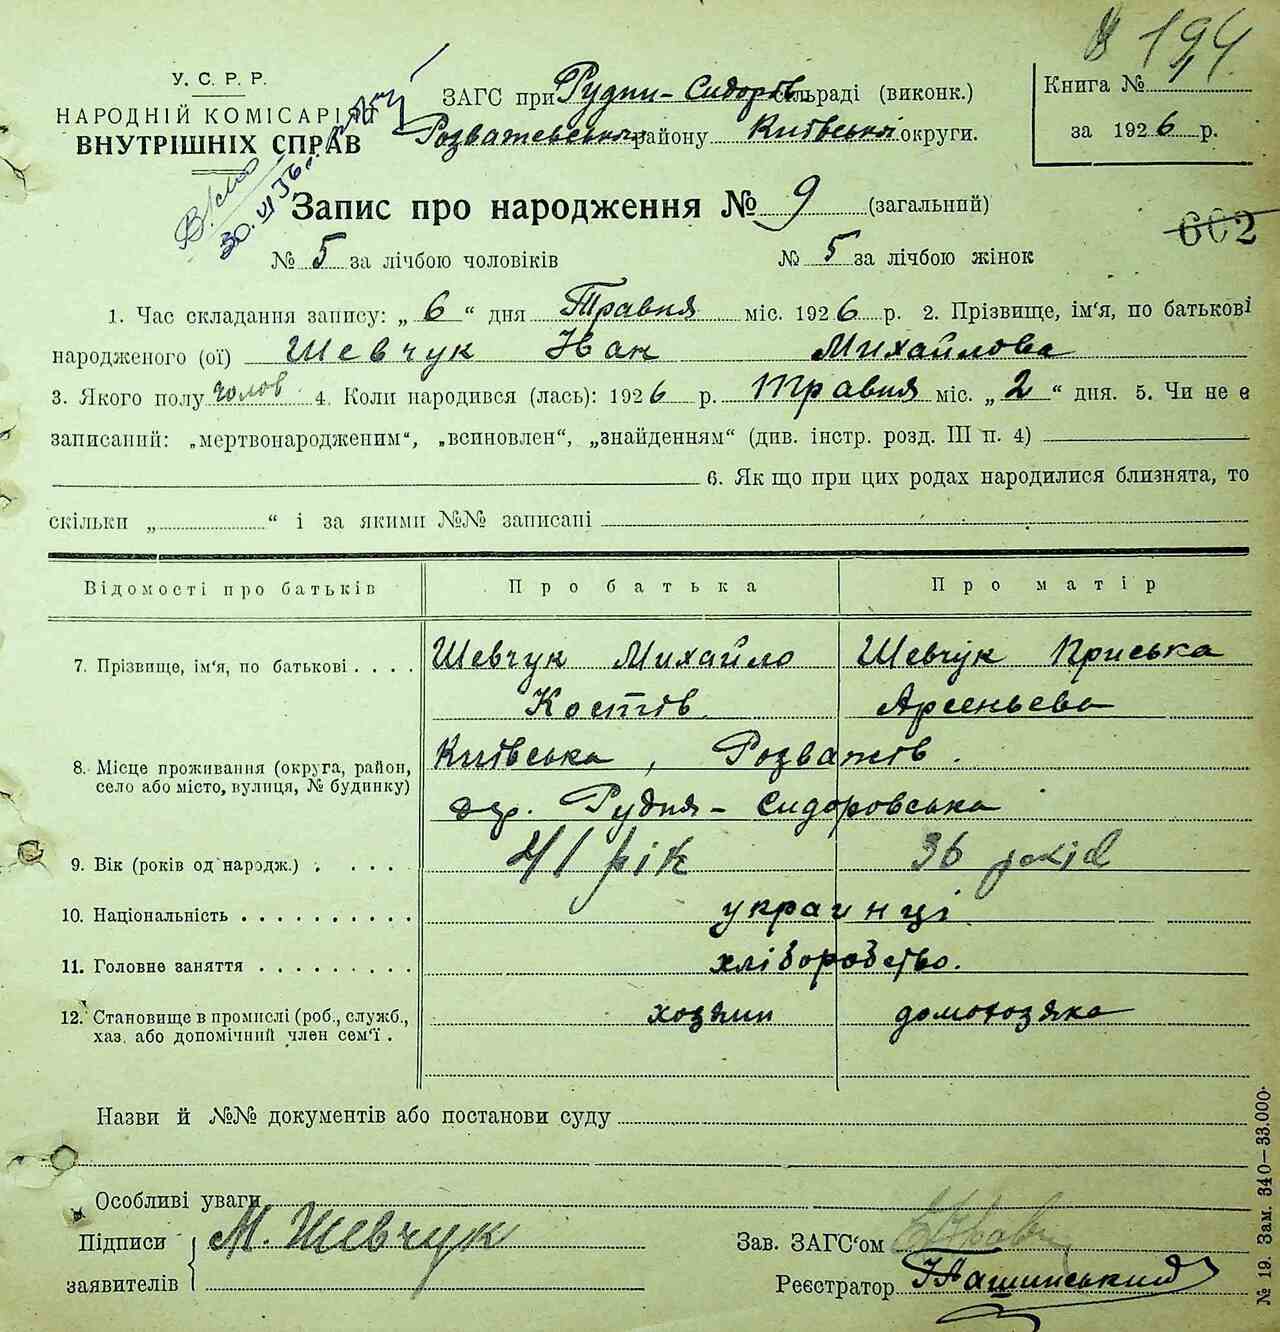 194
У. С. Р. Р.
НАРОДНІЙ КОМІСАРІЯТ
ВНУТРІШНІХ СПРАВ
ЗАГС при Рудни-Сидорів сільраді (виконк.)
Розважевського району Київської округи.
Книга № 1
за 1926 р.
30.VI 36
Запис про народження № 9 (загальний)
602
№ 5 за лічбою чоловіків № 5 за лічбою жінок
1. Час складання запису: „ 6 “ дня Травня міс. 1926 р. 2. Прізвище, ім‘я, по батькові
народженого (ої) Шевчук Іван Михайлова
3. Якого полу чолов 4. Коли народився (лась): 1926 р. Травня міс. „ 2 “ дня. 5. Чи не є
записаний: „мертвонародженим“, „всиновлен“, „знайденням“ (див. інстр. розд. III п. 4)
6. Як що при цих родах народилися близнята, то
скільки „ “ і за якими №№ записані
Відомості про батьків Про батька Про матір
7. Прізвище, ім‘я, по батькові . . . . Шевчук Михайло Шевчук Приська
Костів Арсеньева
8. Місце проживання (округа, район, село або місто, вулиця, № будинку) Київська, Розважів.
дер. Рудня-Сидоровська
9. Вік (років од народж.) . . . . . 41 рік 36 років
10. Національність . . . . . . . . . . украинці
11. Головне заняття . . . . . . . . . хліборобство.
12. Становище в промислі (роб., служб., хаз. або допомічний член сем‘ї . хозяин домохозяка
Назви й №№ документів або постанови суду
Особливі уваги
Підписи заявителів М. Шевчук
Зав. ЗАГС‘ом
Реєстратор
№ 19. Зам. 340—33.000.